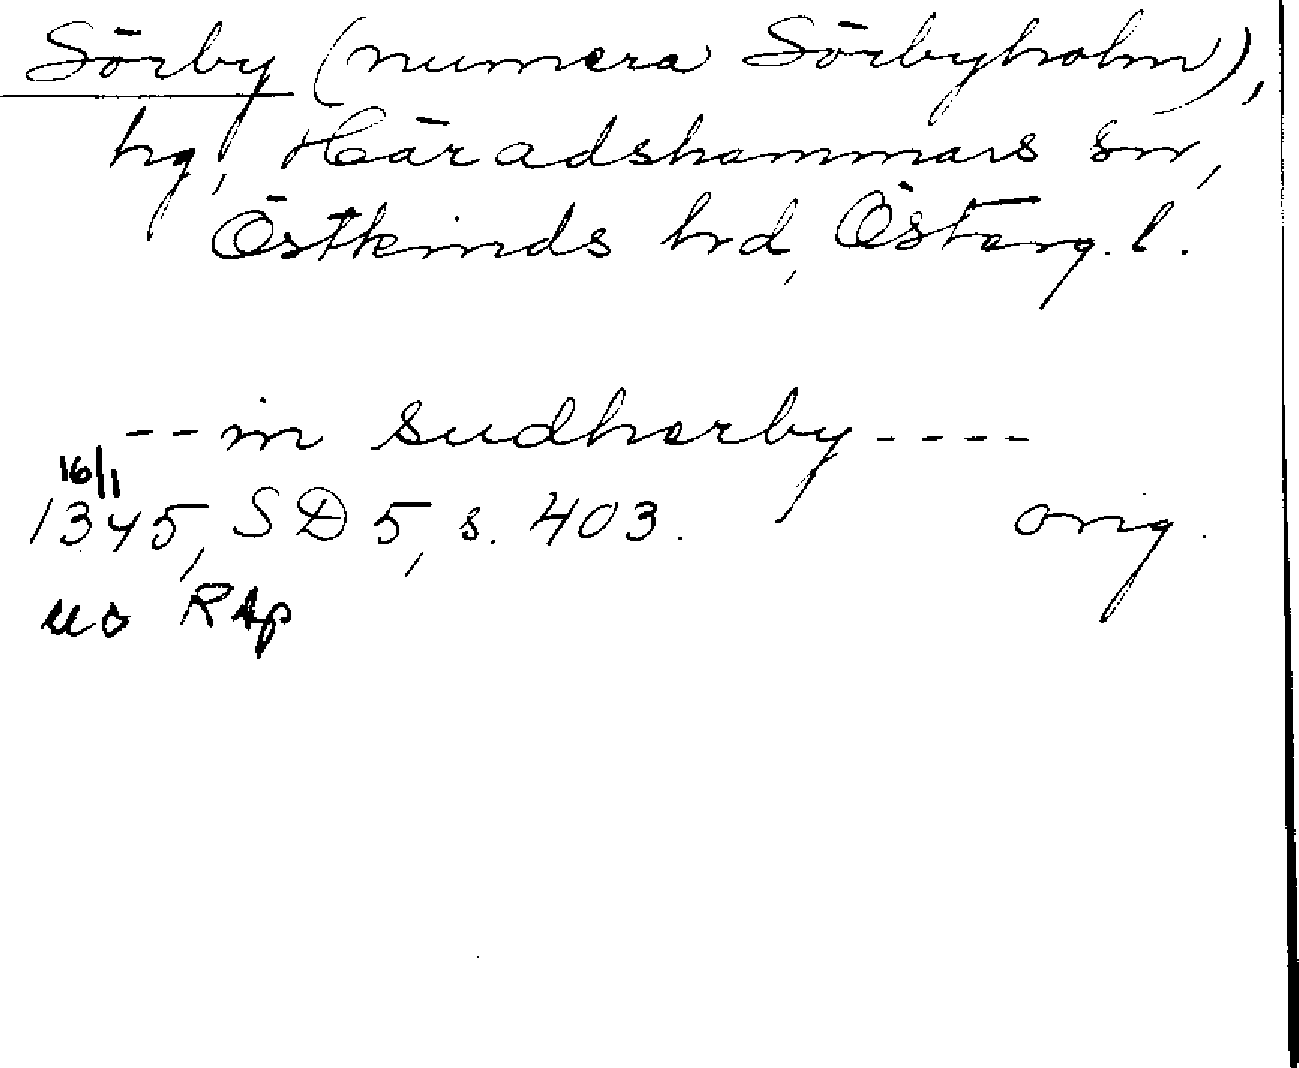 Sörby (numera Sörbyholm),
hg, Häradshammars sn,
Östkinds hrd, Österg. l.
-- in sudherby ----
16/1
1345, SD 5, s. 403. orig.
uo RAp